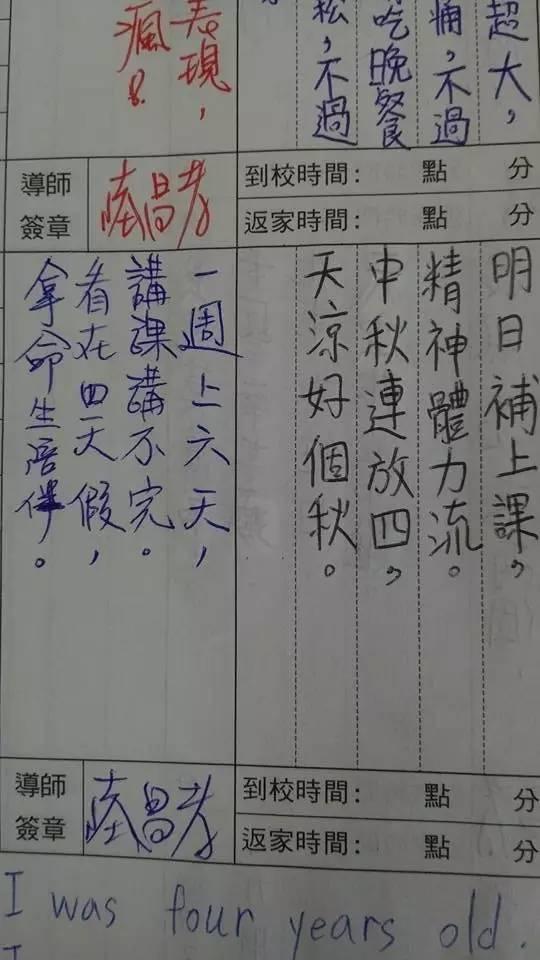 超大，
痛，不過
吃晚餐
松，不過
表現，
瘋
導師
簽章
到校時間：　點　分
返家時間：　點　分
明日補上課，
精神體力流。
中秋連放四，
天涼好個秋。
一週上六天，
講課講不完。
看在四天假，
拿命生陪伴。
導師
簽章
到校時間：　點　分
返家時間：　點　分
I was four years old.